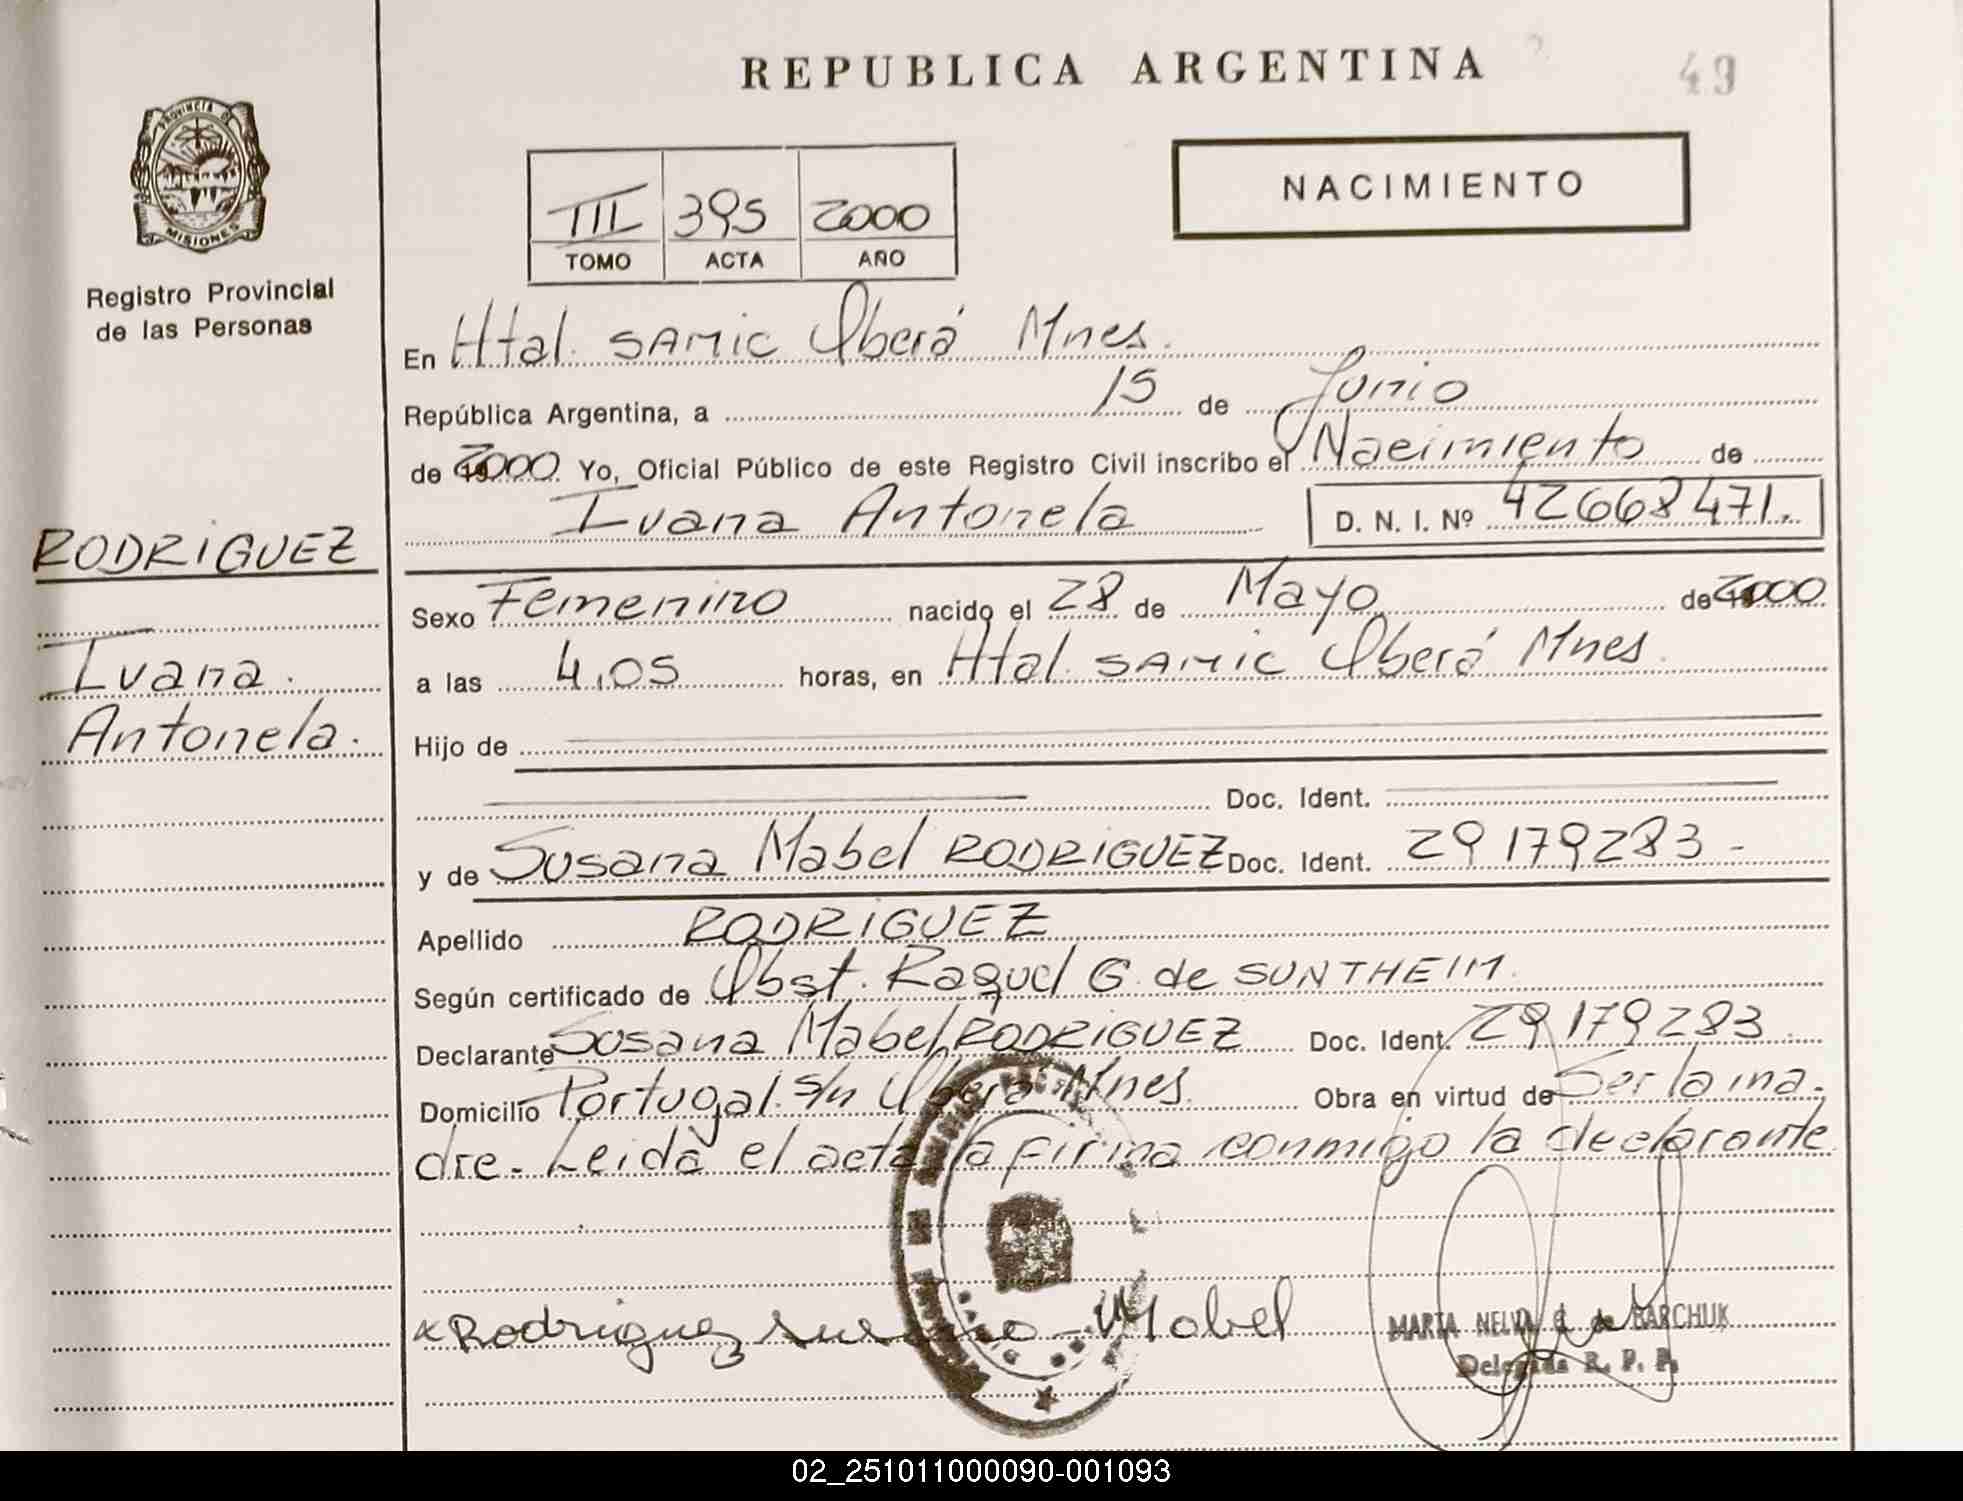 REPUBLICA ARGENTINA
49
PROVINCIA DE
MISIONES
Registro Provincial
de las Personas
NACIMIENTO
III 395 2000
TOMO ACTA AÑO
En Htal. SAMIC Oberá Mnes.
República Argentina, a 15 de Junio
de 2000 Yo, Oficial Público de este Registro Civil inscribo el Nacimiento de
Ivana Antonela D. N. I. Nº 42668471.
RODRIGUEZ
Ivana.
Antonela.
Sexo Femenino nacido el 28 de Mayo de 2000
a las 4,05 horas, en Htal. SAMIC Oberá Mnes.
Hijo de
Doc. Ident.
y de Susana Mabel RODRIGUEZ Doc. Ident. 29179283 -
Apellido RODRIGUEZ
Según certificado de Obst. Raquel G. de SUNTHEIM.
Declarante Susana Mabel RODRIGUEZ Doc. Ident. 29179283.
Domicilio Portugal s/n Oberá Mnes. Obra en virtud de Ser la ma-
dre. Leída el acta la firma conmigo la declarante
x Rodriguez Susana - Mabel
MARIA NELIDA G. de BARCHUK
Delegada R. P. P.
02_251011000090-001093